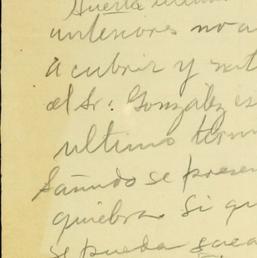 Huerta
interiores no a
a cubrir y
el Sr. González es
ultimo term
Sañudo se presen
quiebra si qu
se pueda saca